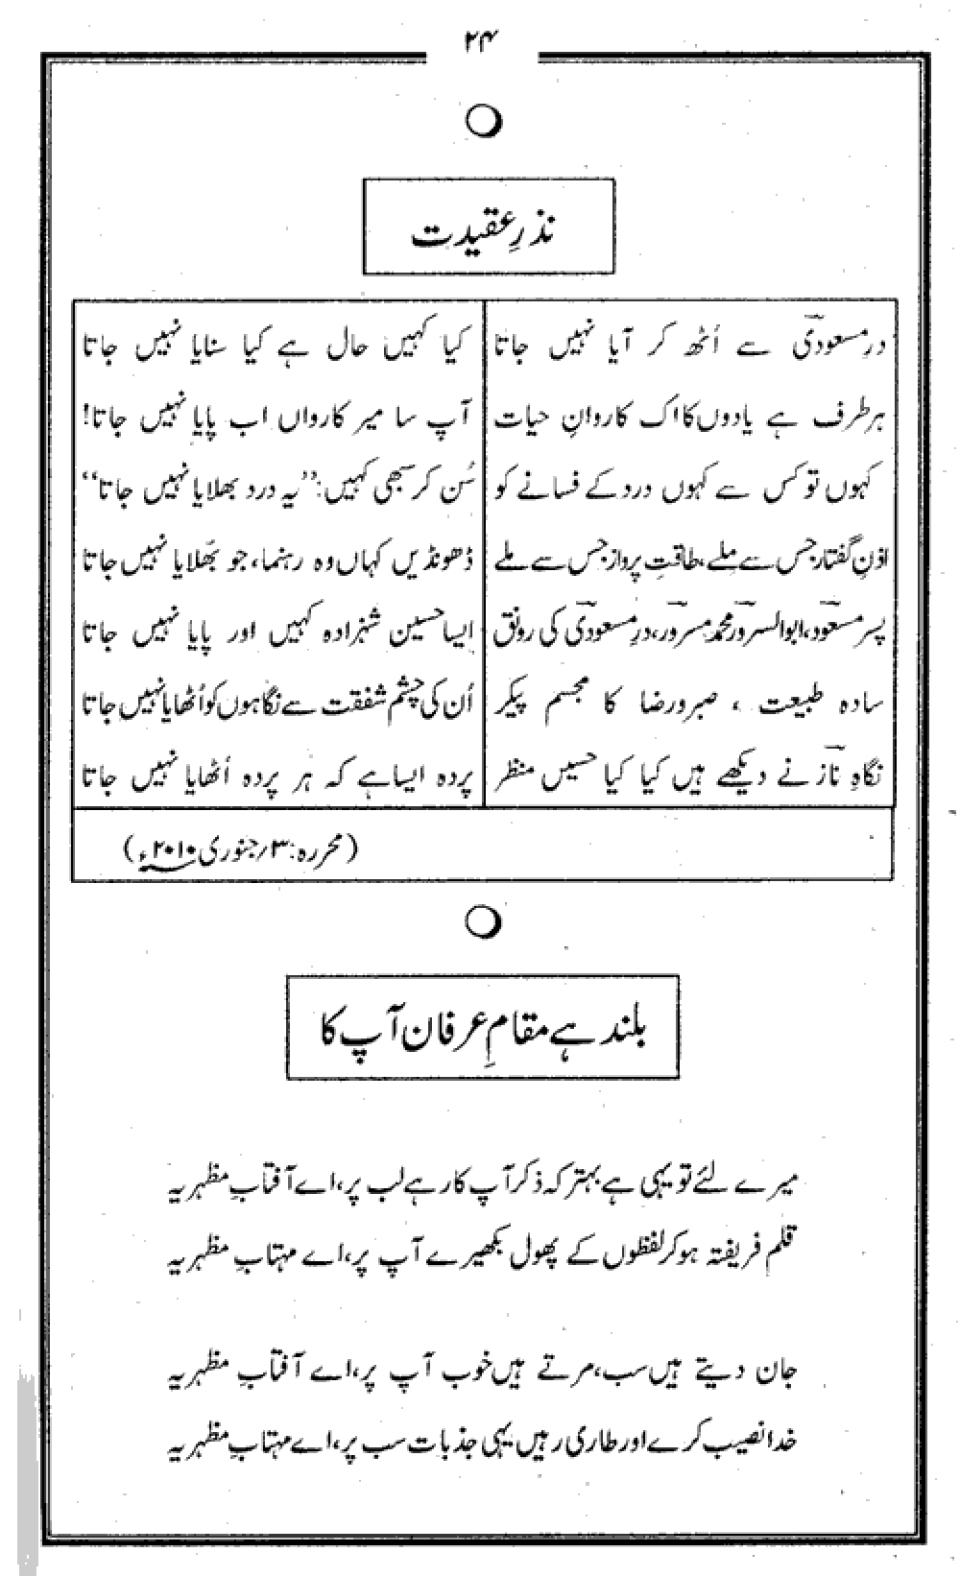 ۲۴
نذرِ عقیدت
درِ مسعودیؔ سے اُٹھ کر آیا نہیں جاتا کیا کہیں حال ہے کیا سنایا نہیں جاتا
ہر طرف ہے یادوں کا اک کاروانِ حیات آپ سا میر کارواں اب پایا نہیں جاتا!
کہوں تو کس سے کہوں درد کے فسانے کو سُن کر سبھی کہیں: ’’یہ درد بھلایا نہیں جاتا‘‘
اذنِ گفتار جس سے ملے، طاقتِ پرواز جس سے ملے ڈھونڈیں کہاں وہ رہنما، جو بھُلایا نہیں جاتا
پسرِ مسعودؔ، ابوالسرورؔ محمد مسرورؔ، درِ مسعودیؔ کی رونق ایسا حسین شہزادہ کہیں اور پایا نہیں جاتا
سادہ طبیعت ، صبر و رضا کا مجسم پیکر اُن کی چشمِ شفقت سے نگاہوں کو اُٹھایا نہیں جاتا
نگاہِ نازؔ نے دیکھے ہیں کیا کیا حسیں منظر پردہ ایسا ہے کہ ہر پردہ اُٹھایا نہیں جاتا
(محررہ: ۳؍جنوری ۲۰۱۰ء)
بلند ہے مقامِ عرفان آپ کا
میرے لئے تو یہی ہے بہتر کہ ذکر آپ کا رہے لب پر، اے آفتابِ مظہریہ
قلم فریفتہ ہو کر لفظوں کے پھول بکھیرے آپ پر، اے مہتابِ مظہریہ
جان دیتے ہیں سب، مرتے ہیں خوب آپ پر، اے آفتابِ مظہریہ
خدا نصیب کرے اور طاری رہیں یہی جذبات سب پر، اے مہتابِ مظہریہ